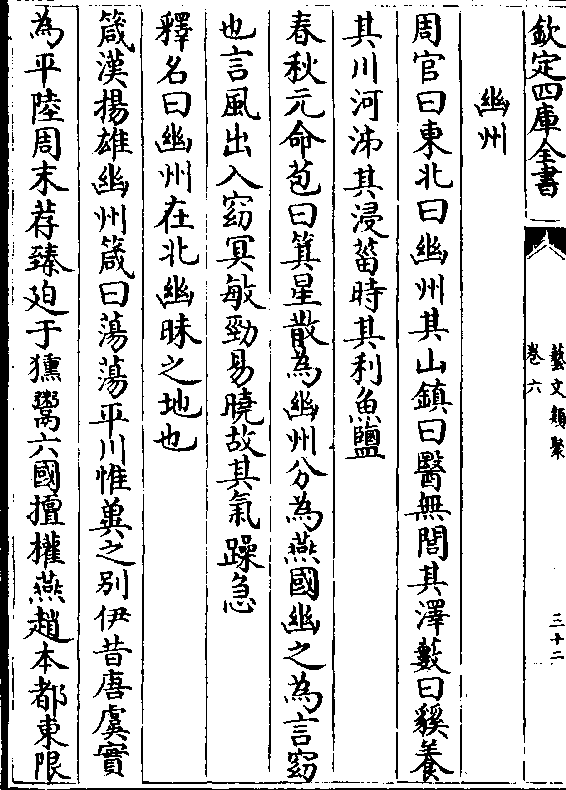 欽定四庫全書
藝文類聚
卷六
三十二
幽州
周官曰東北曰幽州其山鎮曰醫無閭其澤藪曰貕養
其川河泲其浸菑時其利魚鹽
春秋元命苞曰箕星散為幽州分為燕國幽之為言窈
也言風出入窈冥敏勁易曉故其氣躁急
釋名曰幽州在北幽昧之地也
箴漢揚雄幽州箴曰蕩蕩平川惟冀之别伊昔唐虞實
為平陸周末荐臻廹于獯鬻六國擅權燕趙本都東限